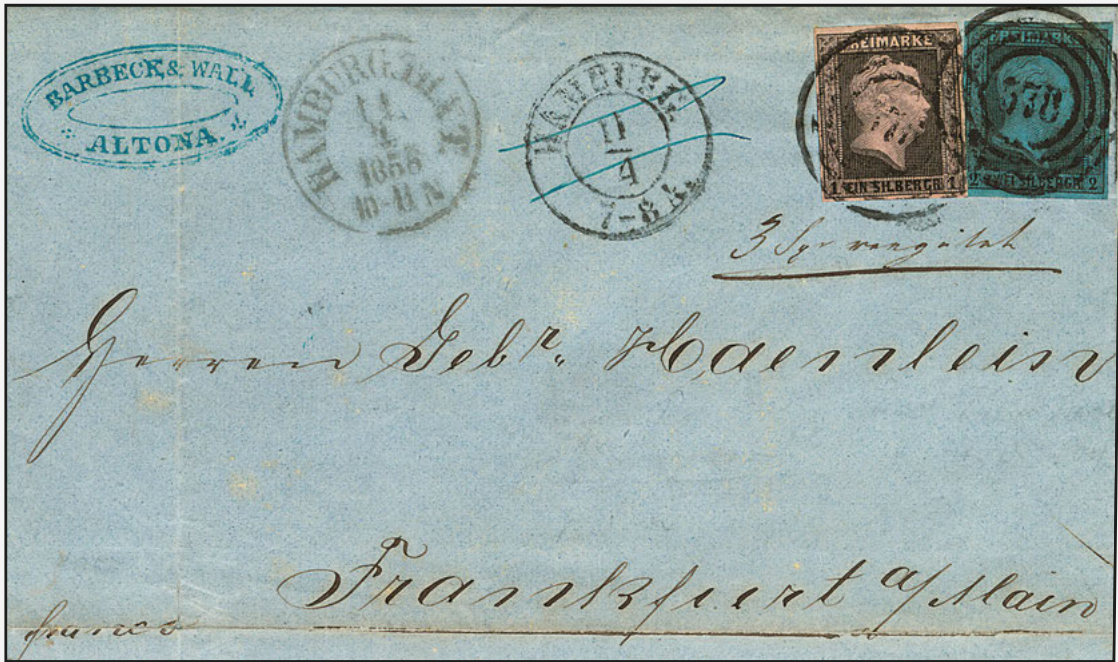 BARBECK & WALL
ALTONA.
HAMBURG Th.&T.
11
4
1856
10-11 N
HAMBURG
11
4
7-8
FREIMARKE
1 EIN SILBERGR. 1
FREIMARKE
2 ZWEI SILBERGR. 2
3 Sgr vergütet
Herren Gebr. Haenlein
Frankfurt a/Main
franco